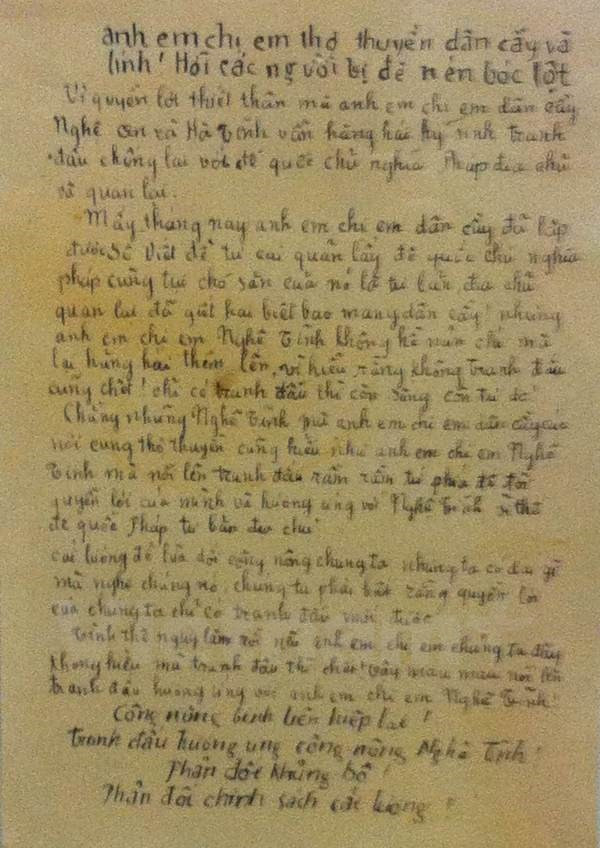 anh em chị em thợ thuyền dân cầy và
lính! Hỡi các người bị đè nén bóc lột
Vì quyền lợi thiết thân mà anh em chị em dân cầy
Nghệ An và Hà Tĩnh vẫn hăng hái hy sinh tranh
đấu chống lại với đế quốc chủ nghĩa Pháp địa chủ
và quan lại.
Mấy tháng nay anh em chị em dân cầy đã lập
được Sô Viết để tự cai quản lấy đế quốc chủ nghĩa
pháp cùng tụi chó săn của nó là tư bản, địa chủ
quan lại đã giết hại biết bao mạng dân cầy! nhưng
anh em chị em Nghệ Tĩnh không hề nản chí mà
lại hăng hái thêm lên, vì hiểu rằng không tranh đấu
cũng chết! chỉ có tranh đấu thì còn sống còn tự do!
Chẳng những Nghệ Tĩnh mà anh em chị em dân cầy các
nơi cùng thợ thuyền cũng hiểu như anh em chị em Nghệ
Tĩnh mà nổi lên tranh đấu rầm rầm tứ phía để đòi
quyền lợi của mình và hưởng ứng với Nghệ Tĩnh vì thế
đế quốc Pháp tư bản địa chủ
cải lương để lừa dối công nông chúng ta nhưng ta có dại gì
mà nghe chúng nó, chúng ta phải biết rằng quyền lợi
của chúng ta chỉ có tranh đấu mới được
Tình thế nguy lắm rồi nếu anh em chị em chúng ta đây
không hiểu mà tranh đấu thì chết! vậy mau mau nổi lên
tranh đấu hưởng ứng với anh em chị em Nghệ Tĩnh!
Công nông binh liên hiệp lại!
Tranh đấu hưởng ứng công nông Nghệ Tĩnh!
Phản đối khủng bố!
Phản đối chính sách cải lương!